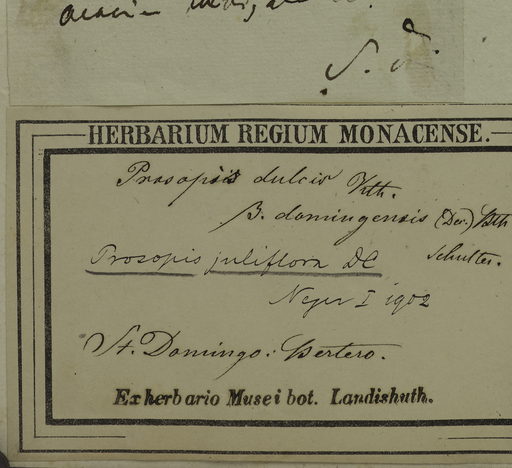 S. d.
HERBARIUM REGIUM MONACENSE.
Prosopis dulcis Kth.
β. domingensis (Dec.) Bth
Schultes.
Prosopis juliflora DC
Neger I 1902
St. Domingo: Bertero.
Ex herbario Musei bot. Landishuth.